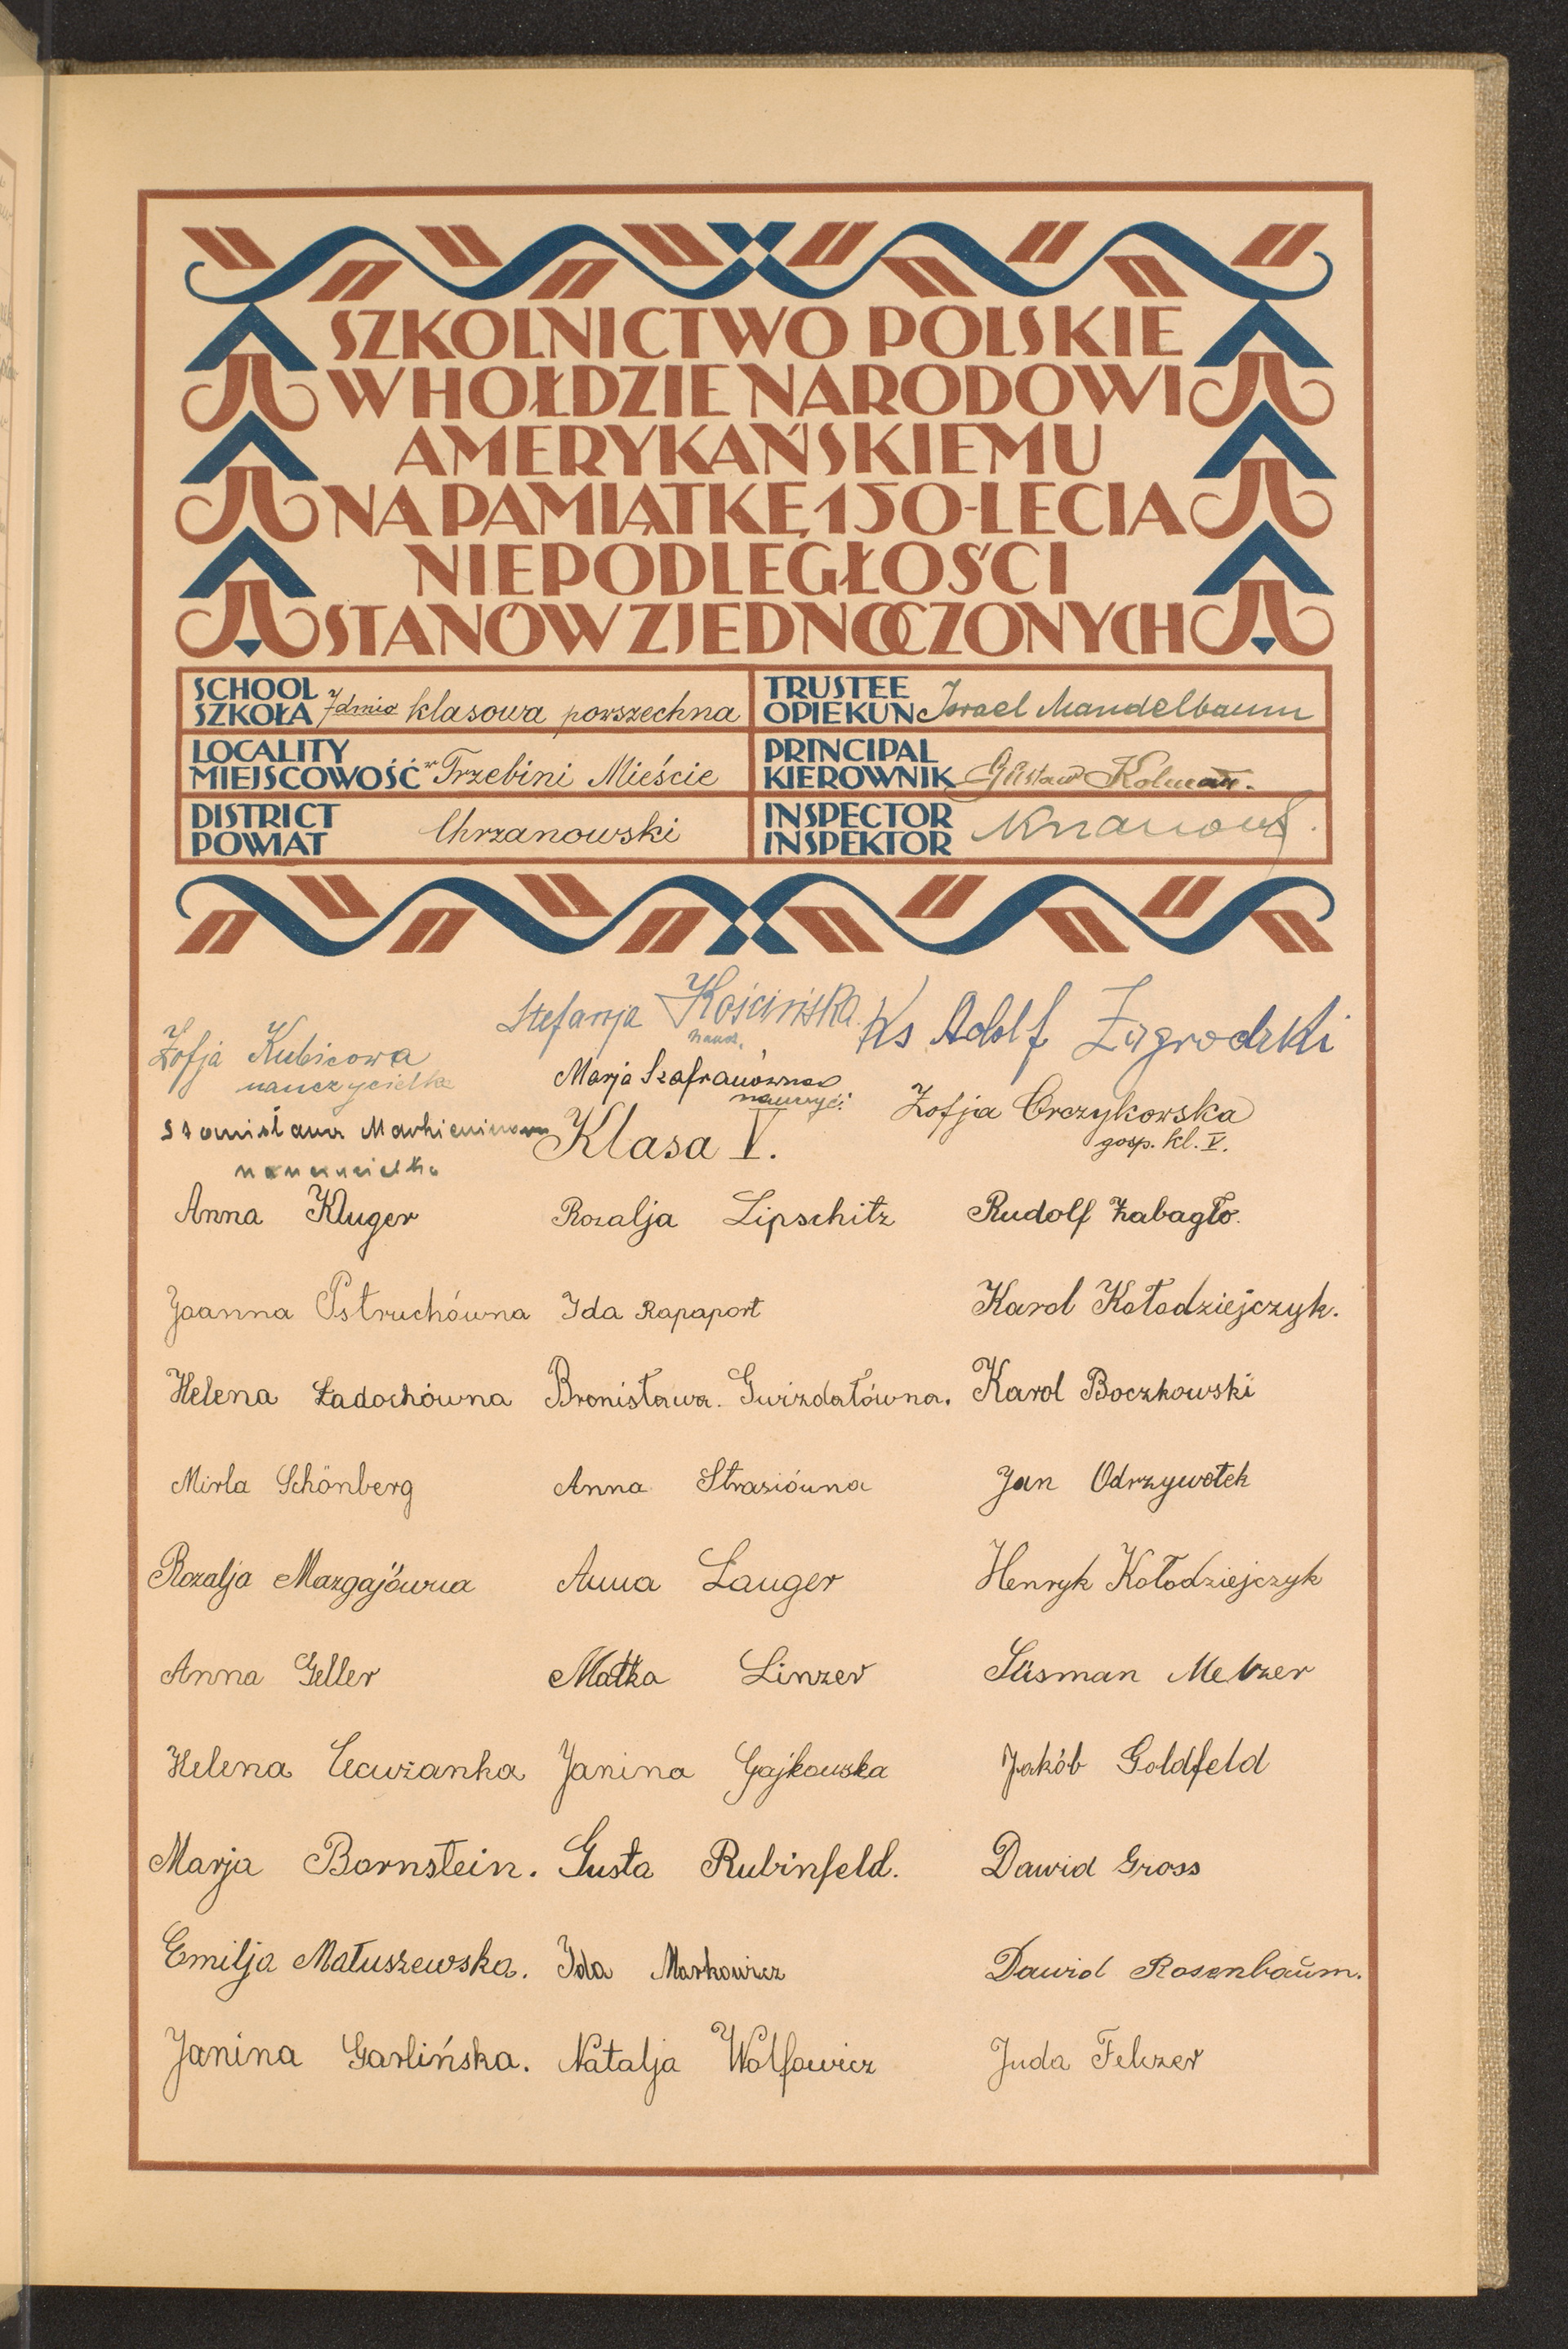 SZKOLNICTWO POLSKIE
W HOŁDZIE NARODOWI
AMERYKAŃSKIEMU
NA PAMIĄTKĘ 150-LECIA
NIEPODLEGŁOŚCI
STANÓW ZJEDNOCZONYCH
SCHOOL
SZKOŁA 7dmio klasowa powszechna
TRUSTEE
OPIEKUN Israel Mandelbaum
LOCALITY
MIEJSCOWOŚĆ w Trzebini Mieście
PRINCIPAL
KIEROWNIK Gustaw Kolman.
DISTRICT
POWIAT Chrzanowski
INSPECTOR
INSPEKTOR
Stefanja Kościńska Ks Adolf Zagrodzki
naucz.
Zofja Kubicowa
nauczycielka
Marja Szafranówna
nauczyc.
Zofja Orczykowska
gosp. kl. V.
Stanisława
nauczycielka
Klasa V.
Anna Kluger Rozalja Lipschitz Rudolf Żabagło.
Joanna Pstruchówna Ida Rapaport Karol Kołodziejczyk.
Helena Ładochówna Bronisława Gwizdałówna. Karol Boczkowski
Mirla Schönberg Anna Strasiówna Jan Odrzywołek
Rozalja Mazgajówna Anna Langer Henryk Kołodziejczyk
Anna Geller Matka Linzer Süsman Melzer
Helena Janina Gajkowska Jakób Goldfeld
Marja Bornstein. Gusta Rubinfeld. Dawid Gross
Emilja Matuszewska. Ida Markowicz Dawid Rosenbaum.
Janina Garlińska. Natalja Wolfowicz Juda Felczer